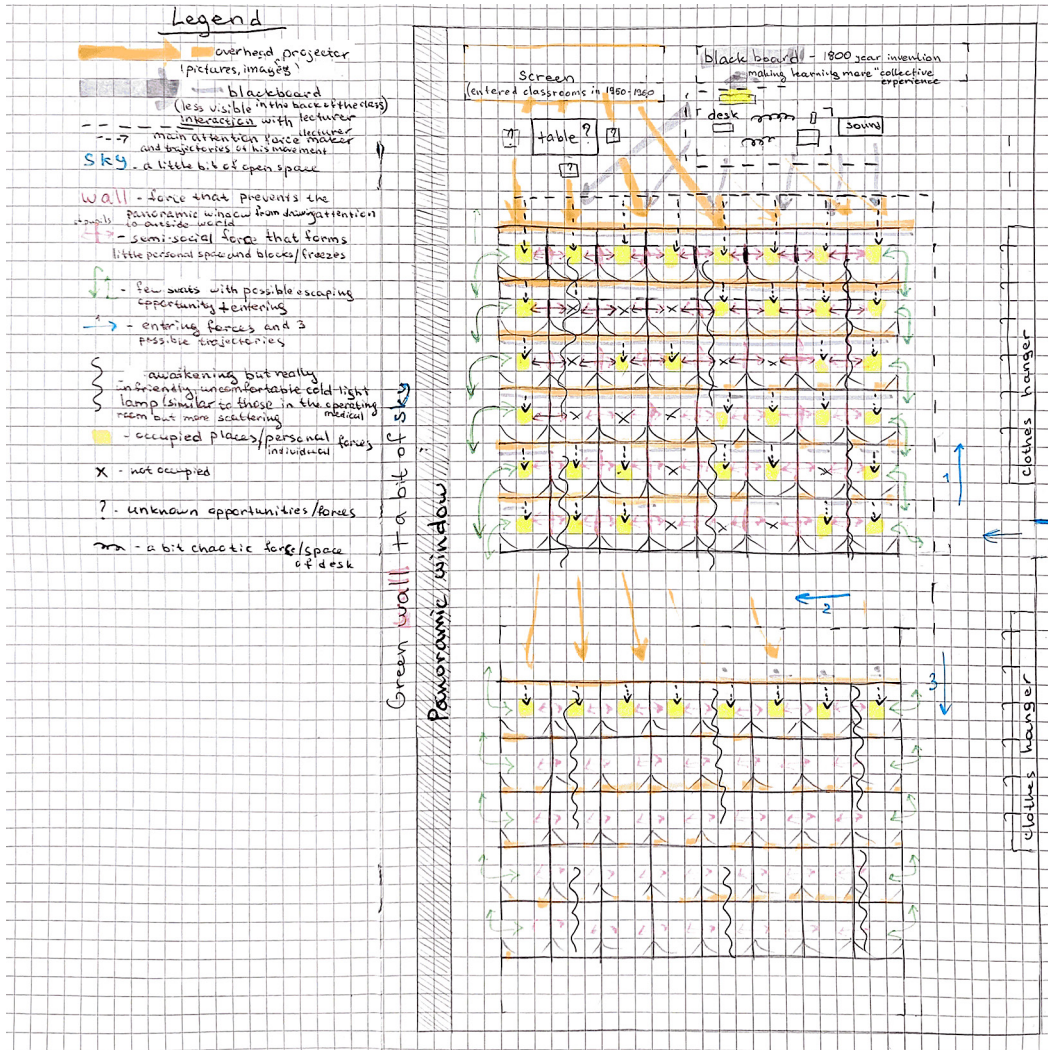 Legend
overhead projector
'pictures, images'
blackboard
(less visible in the back of the class)
interaction with lecturer
lecturer
main attention force maker
and trajectories of his movement
Sky - a little bit of open space
wall - force that prevents the
panoramic window from drawing attention
to outside world
- semi-social force that forms
little personal space and blocks/freezes
- few seats with possible escaping
opportunity + entering
- entring forces and 3
possible trajectories
- awakening but really
unfriendly, uncomfortable cold light
lamp/similar to those in the operating
medical
room but more scattering
- occupied places/personal forces
individual
x - not occupied
? - unknown opportunities/forces
- a bit chaotic force/space
of desk
Green wall + a bit of sky
Panoramic window
Screen
(entered classrooms in 1950-1960
black board - 1800 year invention
making learning more "collective
experience
?
table ?
?
?
desk
sound
clothes hanger
1
2
3
clothes hanger